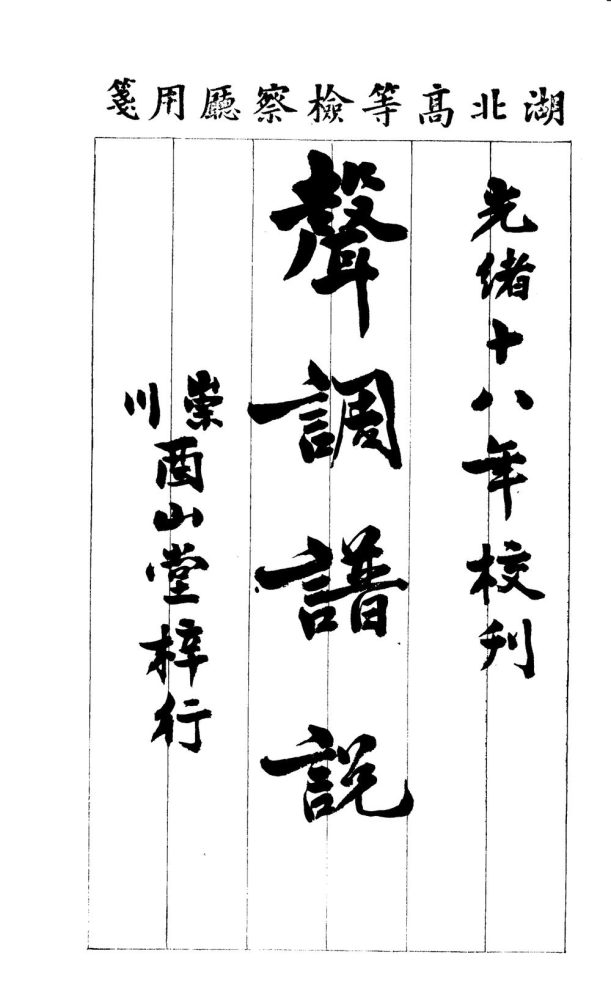 湖北高等檢察廳用箋
光緒十八年校刊
聲調譜說
崇川酉山堂梓行